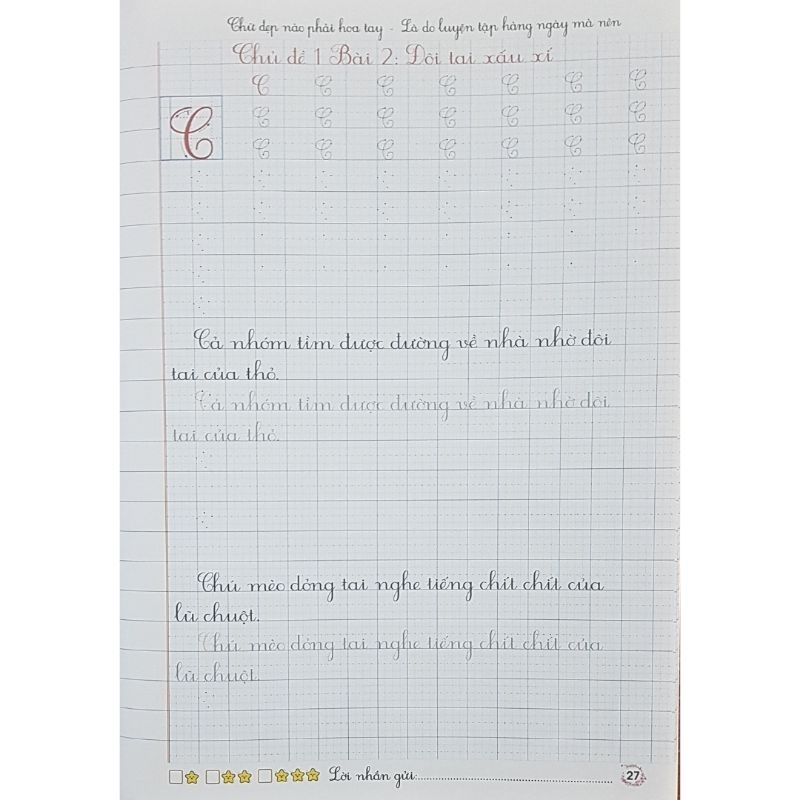 Chữ đẹp nào phải hoa tay - Là do luyện tập hàng ngày mà nên
Chủ đề 1 Bài 2: Đôi tai xấu xí
C C C C C C C
C C C C C C C C
C C C C C C C
Cả nhóm tìm được đường về nhà nhờ đôi
tai của thỏ.
Cả nhóm tìm được đường về nhà nhờ đôi
tai của thỏ.
Chú mèo dỏng tai nghe tiếng chít chít của
lũ chuột.
Chú mèo dỏng tai nghe tiếng chít chít của
lũ chuột.
Lời nhắn gửi:
27